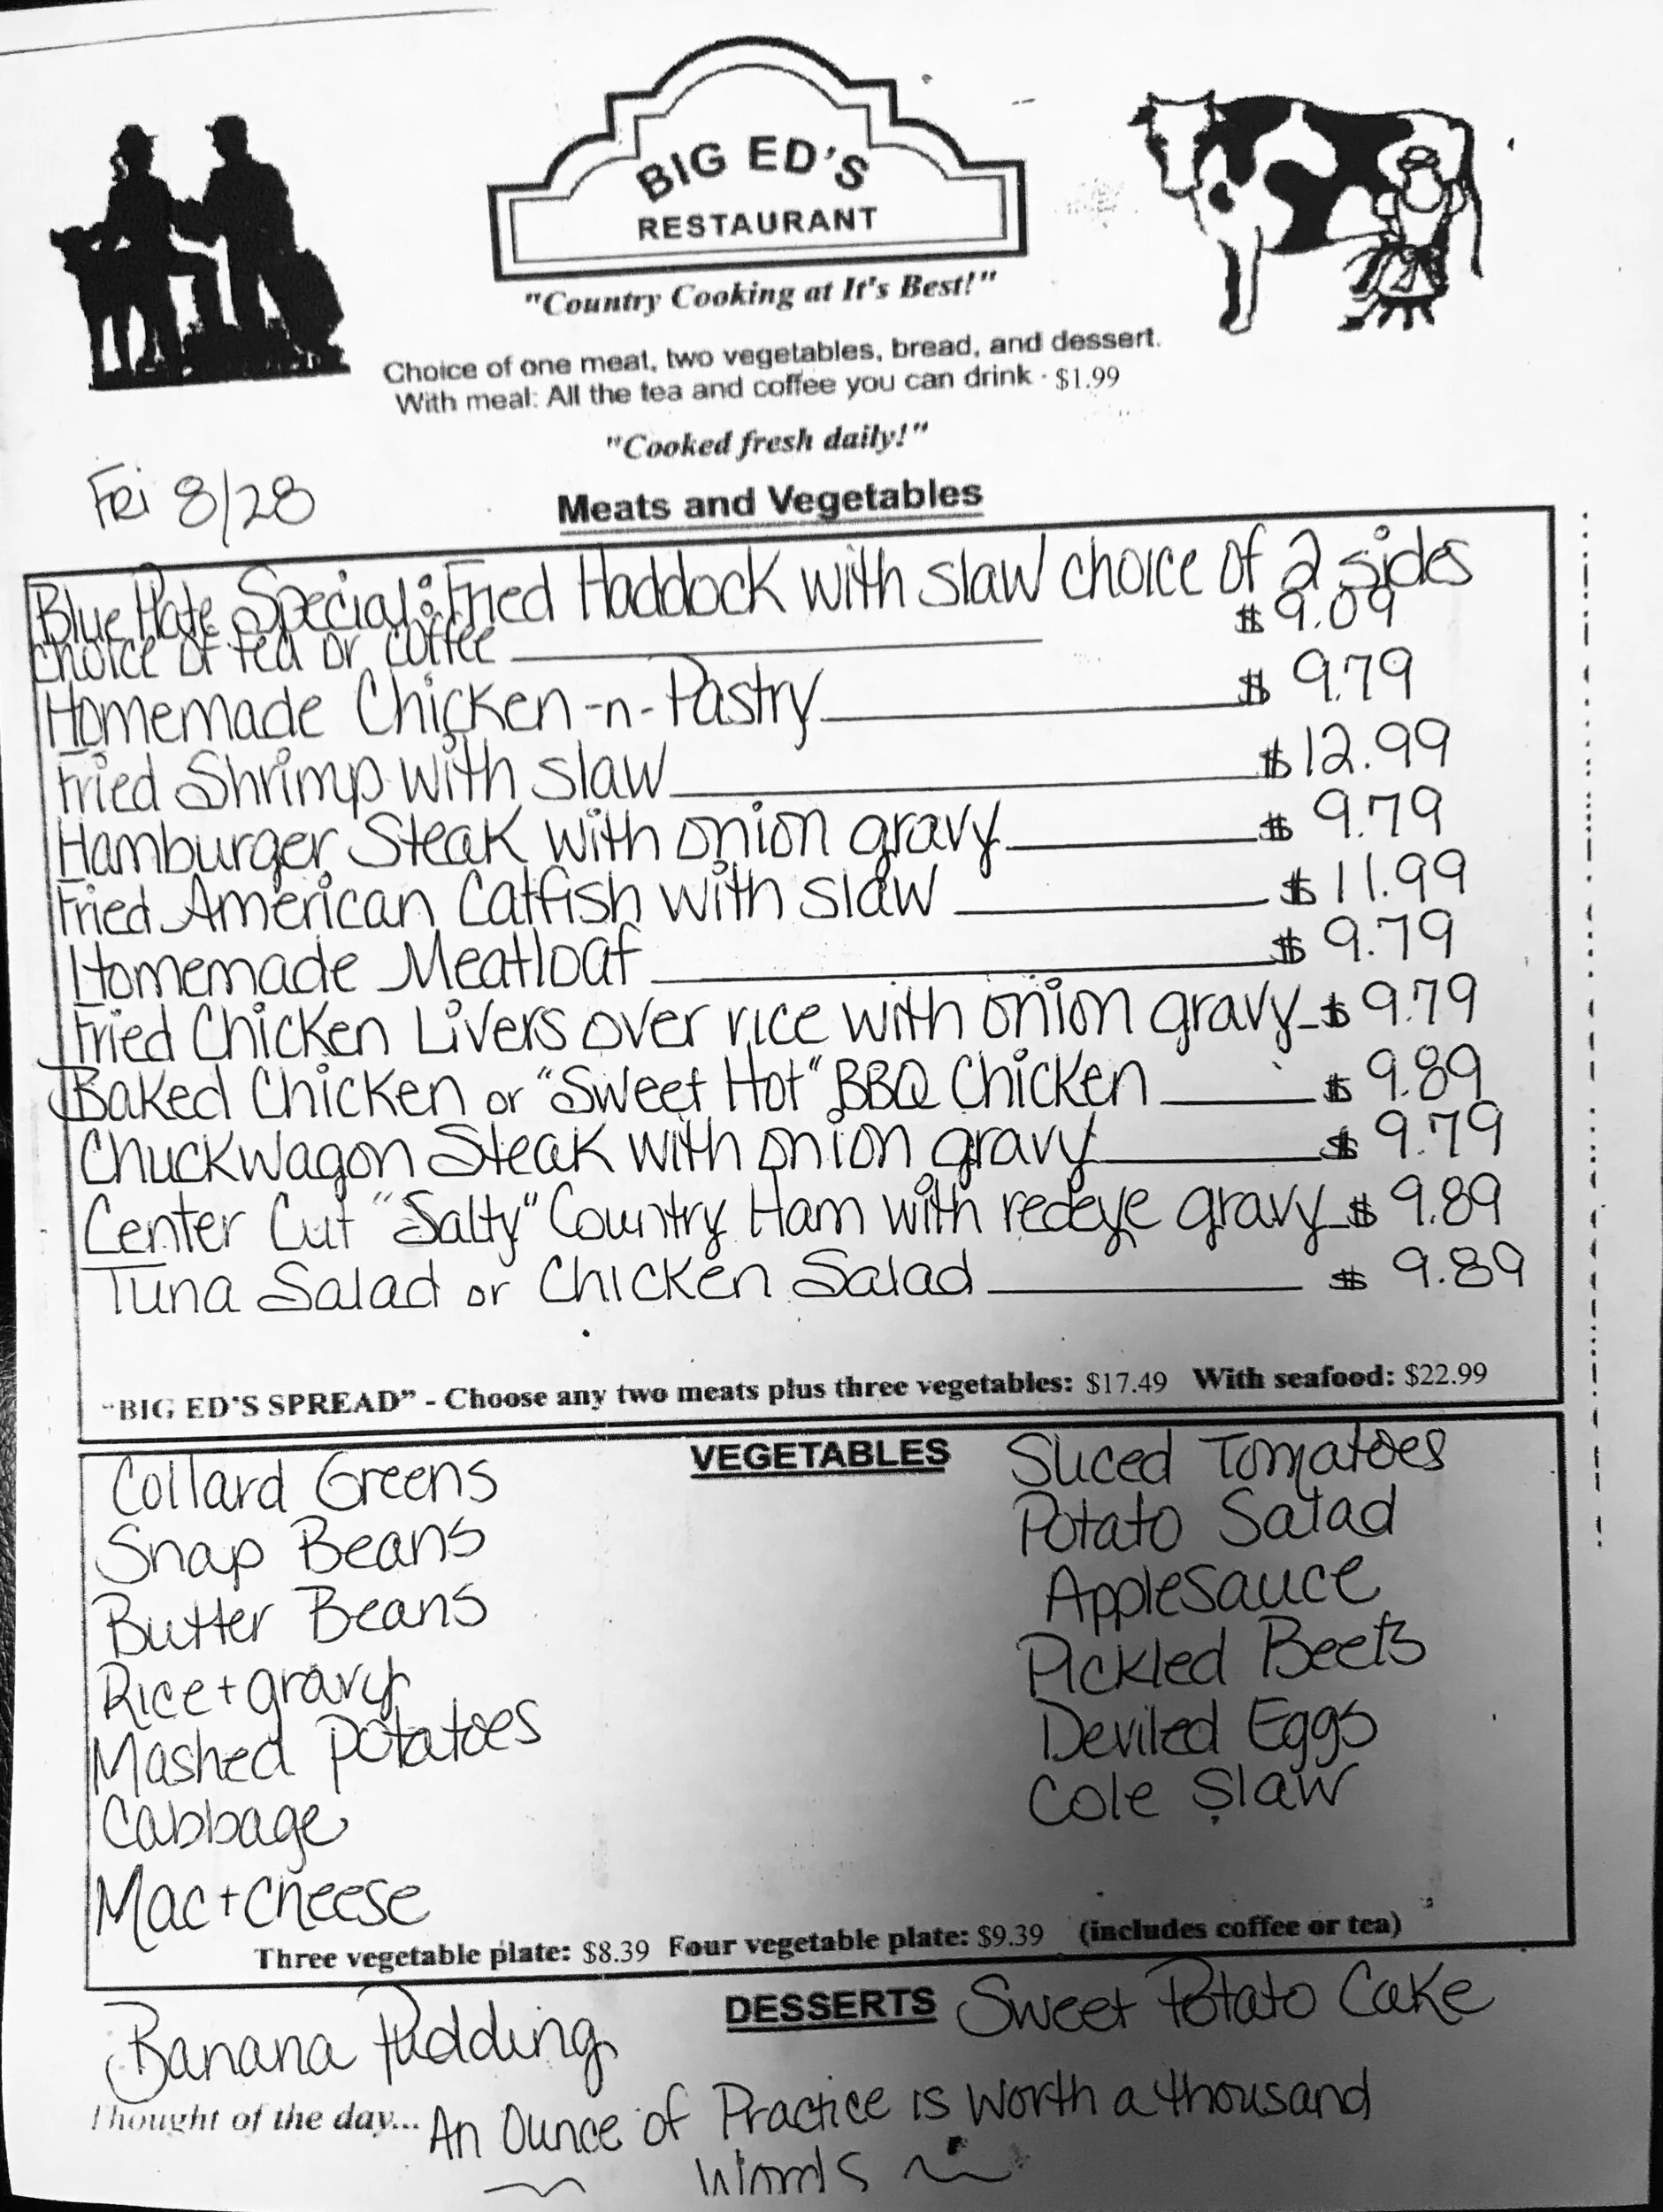 BIG ED'S
RESTAURANT
"Country Cooking at It's Best!"
Choice of one meat, two vegetables, bread, and dessert.
With meal: All the tea and coffee you can drink - $1.99
"Cooked fresh daily!"
Fri 8/28
Meats and Vegetables
Blue Plate Special: Fried Haddock with slaw choice of 2 sides
choice of tea or coffee $ 9.09
Homemade Chicken-n-Pastry $ 9.79
Fried Shrimp with slaw $12.99
Hamburger Steak with onion gravy $ 9.79
Fried American Catfish with slaw $11.99
Homemade Meatloaf $ 9.79
Fried Chicken Livers over rice with onion gravy $ 9.79
Baked Chicken or "Sweet Hot" BBQ Chicken $ 9.89
Chuckwagon Steak with onion gravy $ 9.79
Center Cut "Salty" Country Ham with redeye gravy $ 9.89
Tuna Salad or Chicken Salad $ 9.89
"BIG ED'S SPREAD" - Choose any two meats plus three vegetables: $17.49 With seafood: $22.99
VEGETABLES
Collard Greens
Snap Beans
Butter Beans
Rice + gravy
Mashed Potatoes
Cabbage
Mac + Cheese
Sliced Tomatoes
Potato Salad
Applesauce
Pickled Beets
Deviled Eggs
Cole Slaw
Three vegetable plate: $8.39 Four vegetable plate: $9.39 (includes coffee or tea)
DESSERTS
Banana Pudding
Sweet Potato Cake
Thought of the day... An Ounce of Practice is worth a thousand
Words